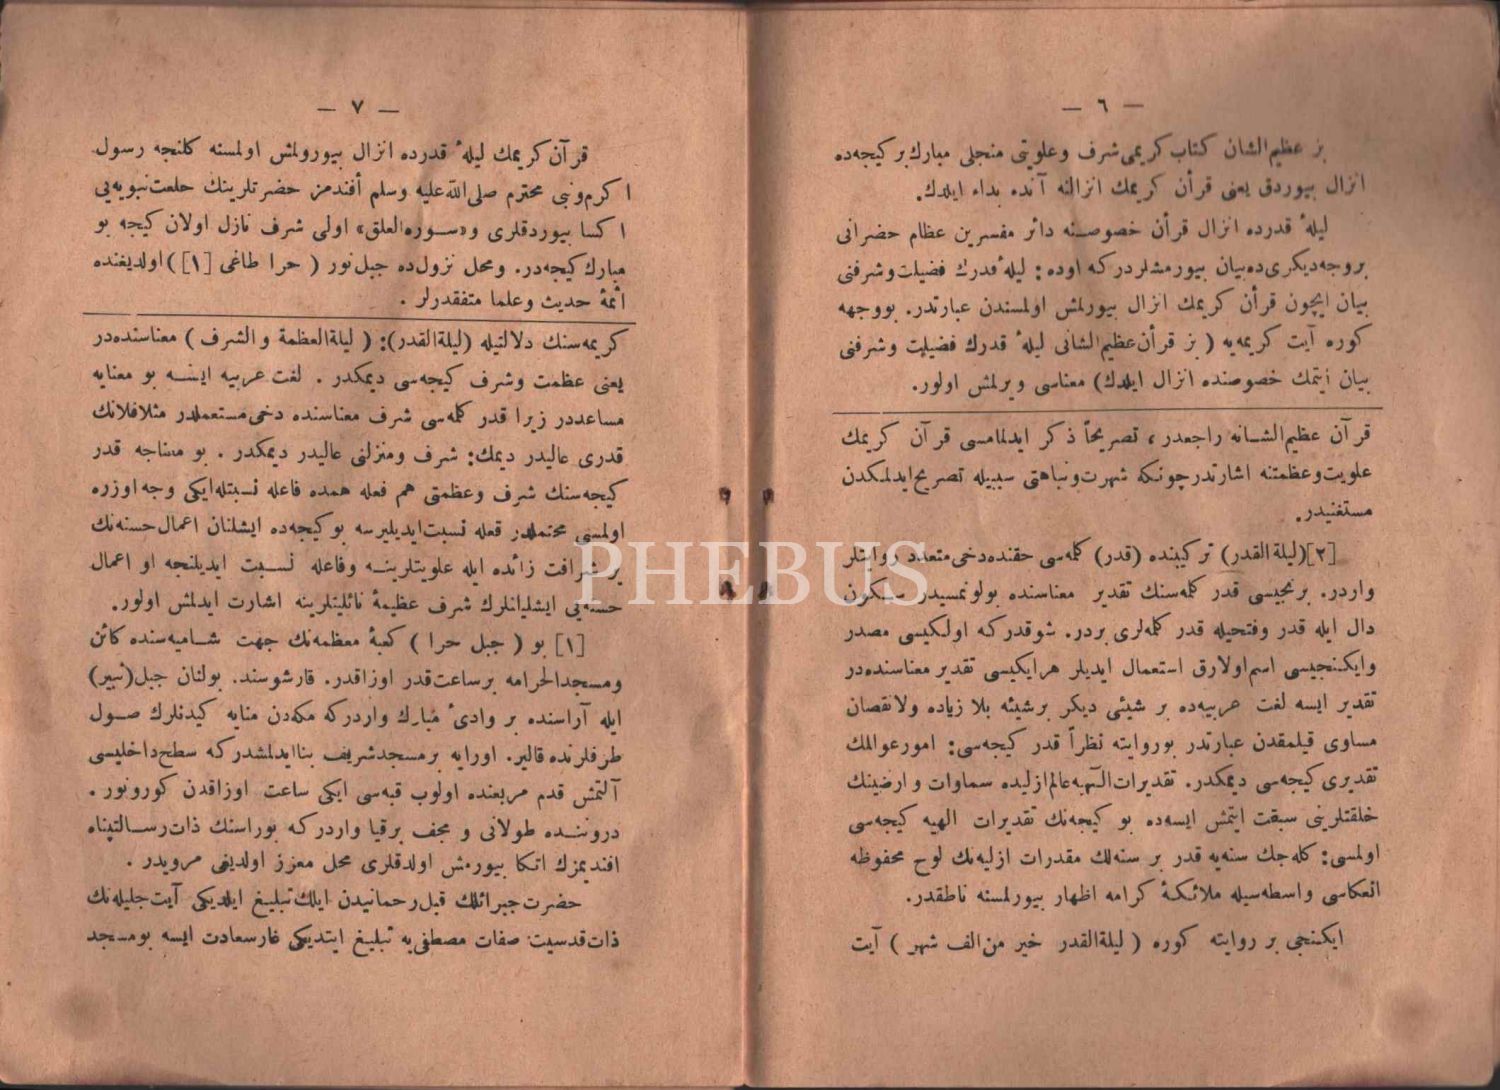 — ٦ —
بز عظيم‌الشان كتاب كريمى شرف وعلويتى منجلى مبارك بر كيجه‌ده
انزال بيوردق يعنى قرأن كريمك انزالنه آنده بداء ايلدك.
ليلهٔ قدرده انزال قرأن خصوصنه دائر مفسرين عظام حضراتى
بروجه‌ديكرى‌ده‌بيان بيورمشلردركه اوده: ليلهٔ‌قدرك فضيلت‌وشرفنى
بيان ايچون قرأن كريمك انزال بيورلمش اولمسندن عبارتدر. بووجهه
كوره آيت كريمه‌يه (بز قرأن‌عظيم‌الشانى ليلهٔ قدرك فضيلت وشرفنى
بيان ايتمك خصوصنده انزال ايلدك) معناسى ويرلمش اولور.
قرآن عظيم‌الشانه راجعدر، تصريحاً ذكر ايدلمامسى قرآن كريمك
علويت‌وعظمتنه اشارتدرچونكه شهرت‌ونباهتى سببيله تصريح‌ايدلمكدن
مستغنيدر.
[٢](ليلة‌القدر) تركيبنده (قدر) كلمه‌سى حقنده‌دخى‌متعدد روايتلر
واردر. برنجيسى قدر كلمه‌سنك تقدير معناسنده بولونمسيدر سكون
دال ايله قدر وفتحيله قدر كلمه‌لرى بردر. شوقدركه اولكيسى مصدر
وايكنجيسى اسم‌اولارق استعمال ايديلر هرايكيسى تقدير معناسنده‌در
تقدير ايسه لغت عربيه‌ده بر شيئى ديكر برشيئه بلا زياده ولانقصان
مساوى قيلمقدن عبارتدر بوروايته نظراً قدر كيجه‌سى: امورعوالمك
تقديرى كيجه‌سى ديمكدر. تقديرات‌الٓهيه عالم‌ازليده سماوات وارضينك
خلقتلرينى سبقت ايتمش ايسه‌ده بو كيجه‌نك تقديرات الهيه كيجه‌سى
اولمسى: كله‌جك سنه‌يه قدر بر سنه‌لك مقدرات ازليه‌نك لوح محفوظه
انعكاسى واسطه‌سيله ملائكهٔ كرامه اظهار بيورلمسنه ناطقدر.
ايكنجى بر روايته كوره ( ليلة‌القدر خير من‌الف شهر ) آيت
— ٧ —
قرآن كريمك ليلهٔ قدرده انزال بيورولمش اولمسنه كلنجه رسول
اكرم‌ونبى محترم صلى‌الله‌عليه وسلم أفندمز حضرتلرينك حلعت‌نبويه‌يى
اكسا بيوردقلرى و«سوره‌العلق» اولى شرف نازل اولان كيجه بو
مبارك كيجه‌در. ومحل نزول‌ده جبل‌نور ( حرا طاغى [١])اولديغنده
ائمهٔ حديث وعلما متفقدرلر .
كريمه‌سنك دلالتيله (ليلة‌القدر): ( ليلة‌العظمة والشرف ) معناسنده‌در
يعنى عظمت وشرف كيجه‌سى ديمكدر . لغت عربيه ايسه بو معنايه
مساعددر زيرا قدر كلمه‌سى شرف معناسنده دخى‌مستعملدر مثلافلانك
قدرى عاليدر ديمك: شرف ومنزلنى عاليدر ديمكدر . بو مساجه قدر
كيجه‌سنك شرف وعظمتى هم فعله همده فاعله نسبتله‌ايكى وجه‌اوزره
اولمسى محتملدر فعله نسبت‌ايديليرسه بوكيجه‌ده ايشلنان اعمال‌حسنه‌نك
برشرافت زائده ايله علويتلرينه وفاعله نسبت ايديلنجه او اعمال
حسنه‌يى ايشليانلرك شرف عظيمهٔ نائليتلرينه اشارت ايدلمش اولور.
[١] بو ( جبل حرا ) كعبهٔ معظمه‌نك جهت شاميه‌سنده كائن
ومسجدالحرامه برساعت‌قدر اوزاقدر. قارشوسند. بولنان جبل(ثبير)
ايله آراسنده بر وادىٔ مبارك واردركه مكه‌دن منايه كيدنلرك صول
طرفلرنده قالير. اورايه برمسجدشريف بناايدلمشدركه سطح‌داخليسى
آلتمش قدم مربعنده اولوب قبه‌سى ايكى ساعت اوزاقدن كورونور .
دروننده طولانى و مجف برقيا واردركه بوراسنك ذات‌رسالتپناه
افنديمزك اتكا بيورمش اولدقلرى محل معزز اولديغى مرويدر .
حضرت‌جبرائلك قبل‌رحمانيدن ايلك‌تبليغ ايلديكى آيت‌جليله‌نك
ذات‌قدسيت صفات مصطفى‌يه تبليغ ايتديكى غارسعادت ايسه بومسجد
PHEBUS